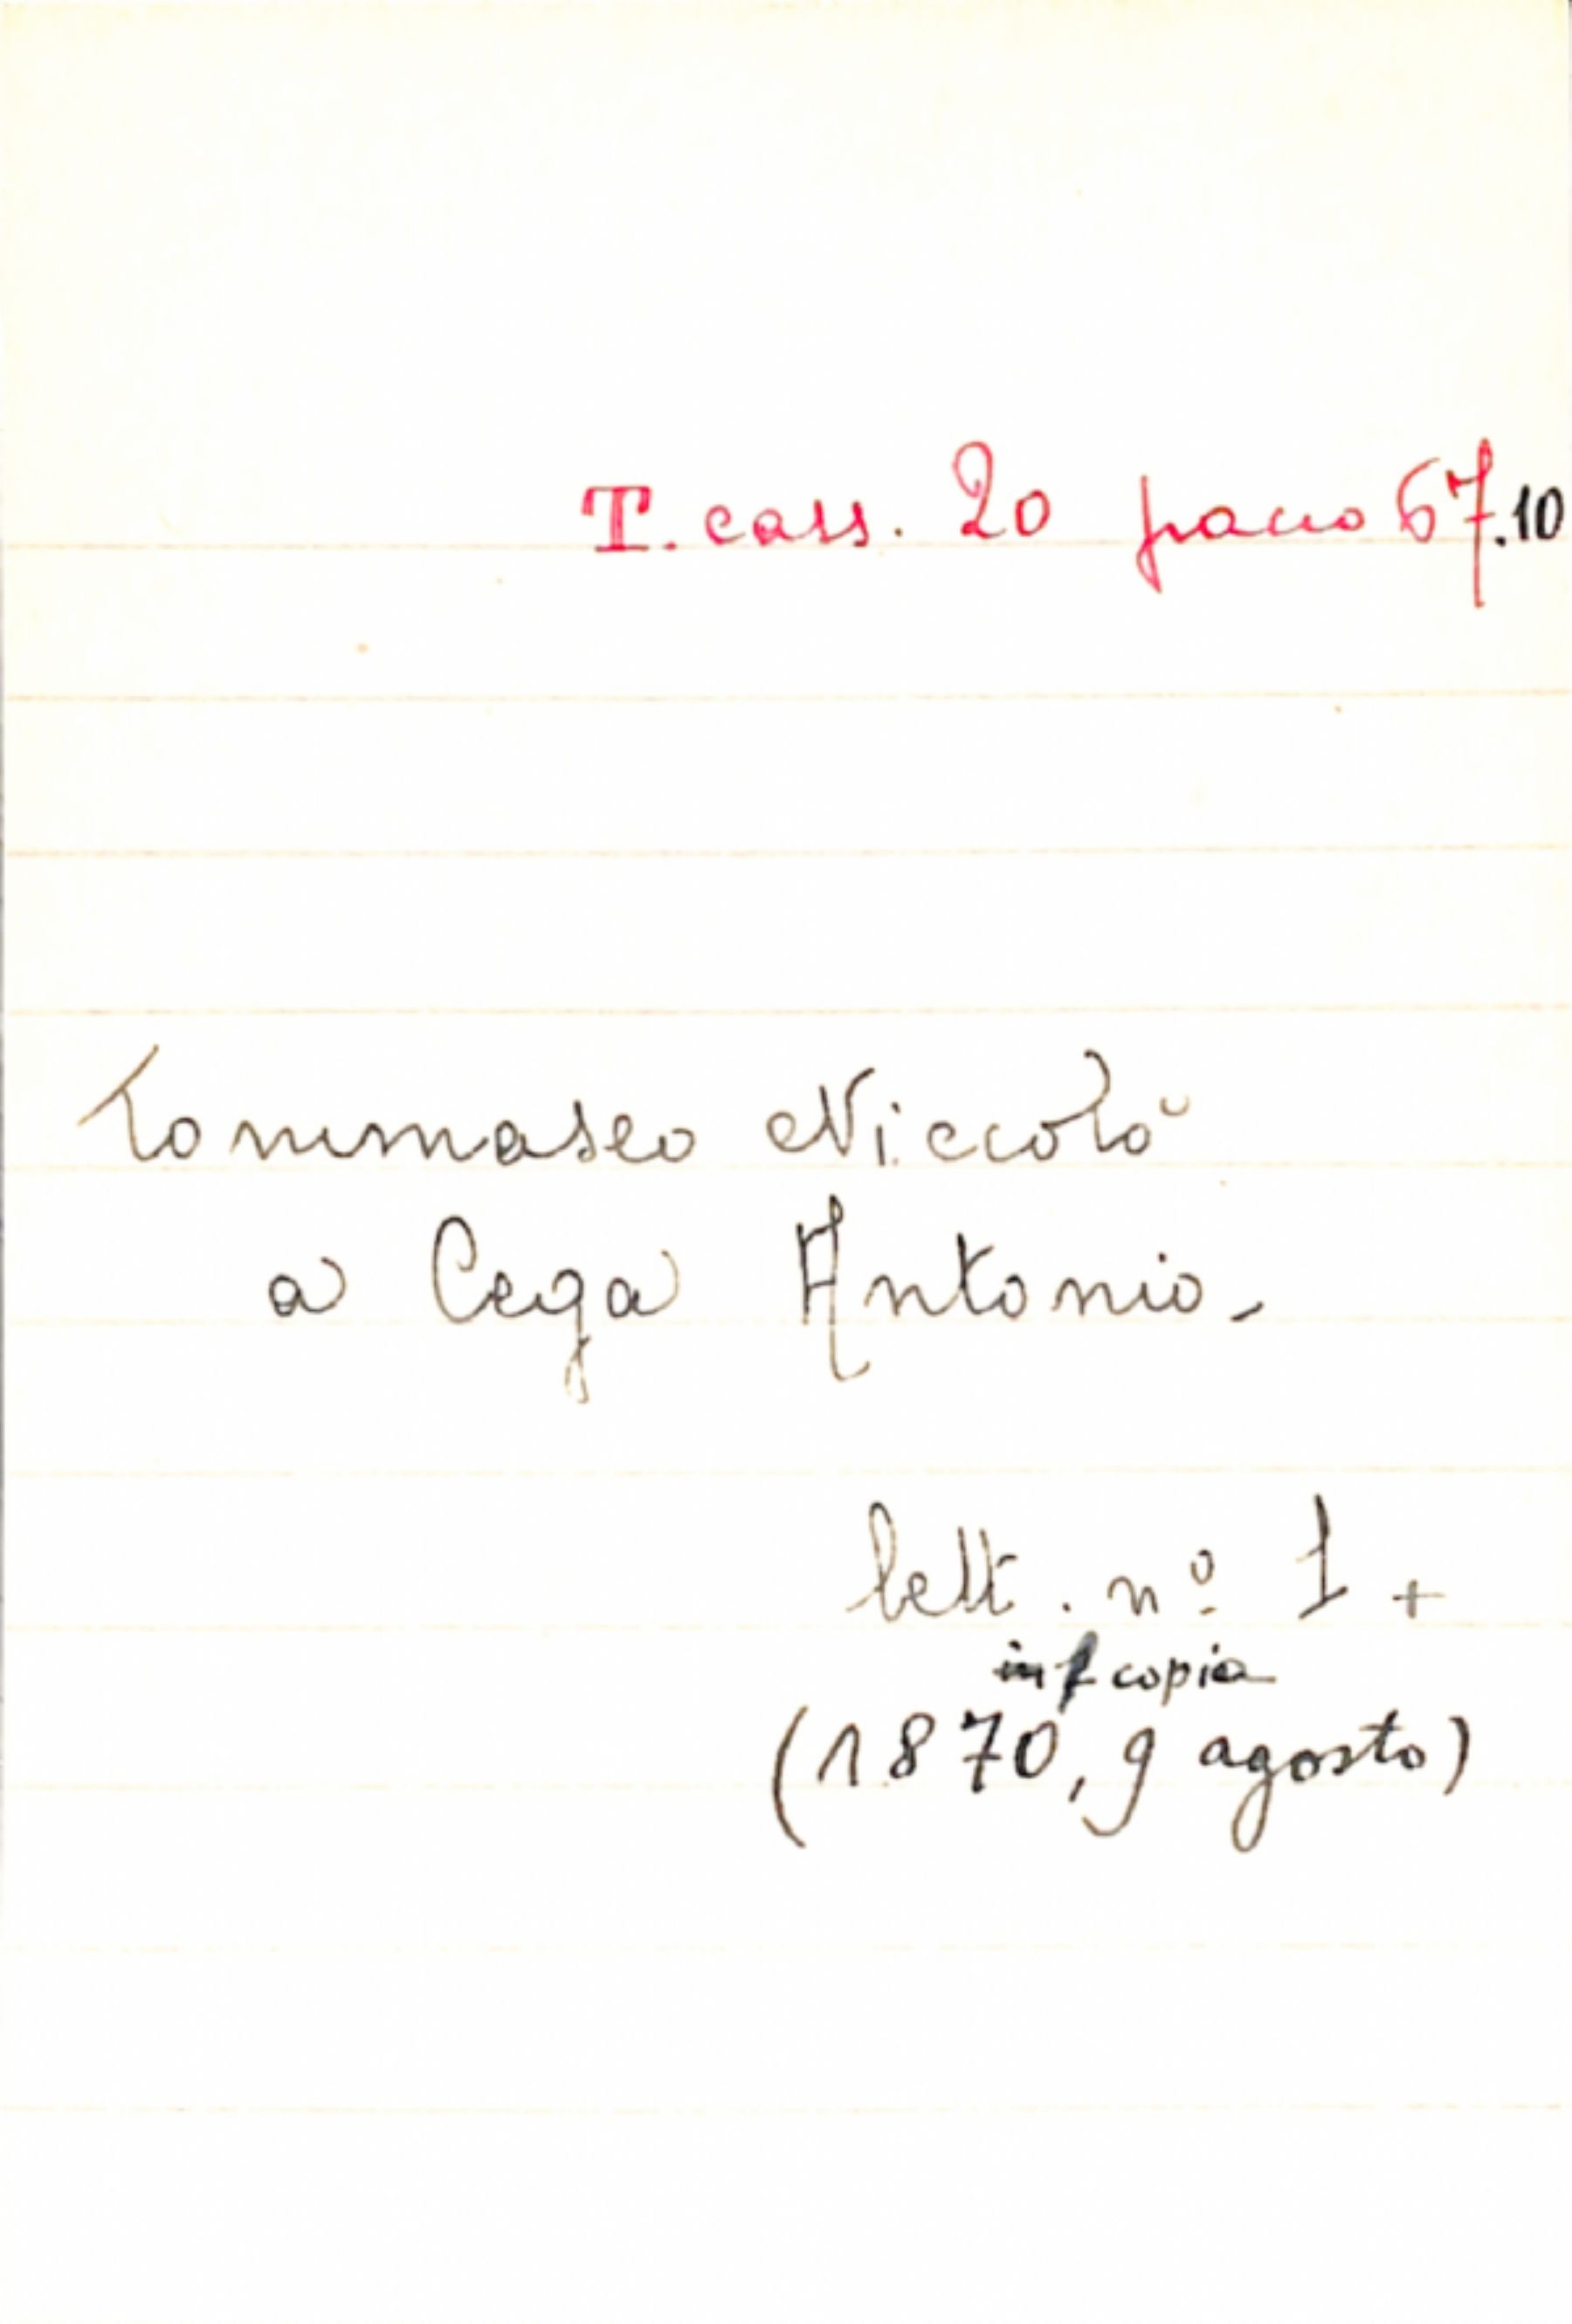 T. cass. 20 pacco 67.10
Tommaseo Niccolò
a Cega Antonio.
lett. nº 1 +
in copia
(1870, 9 agosto)